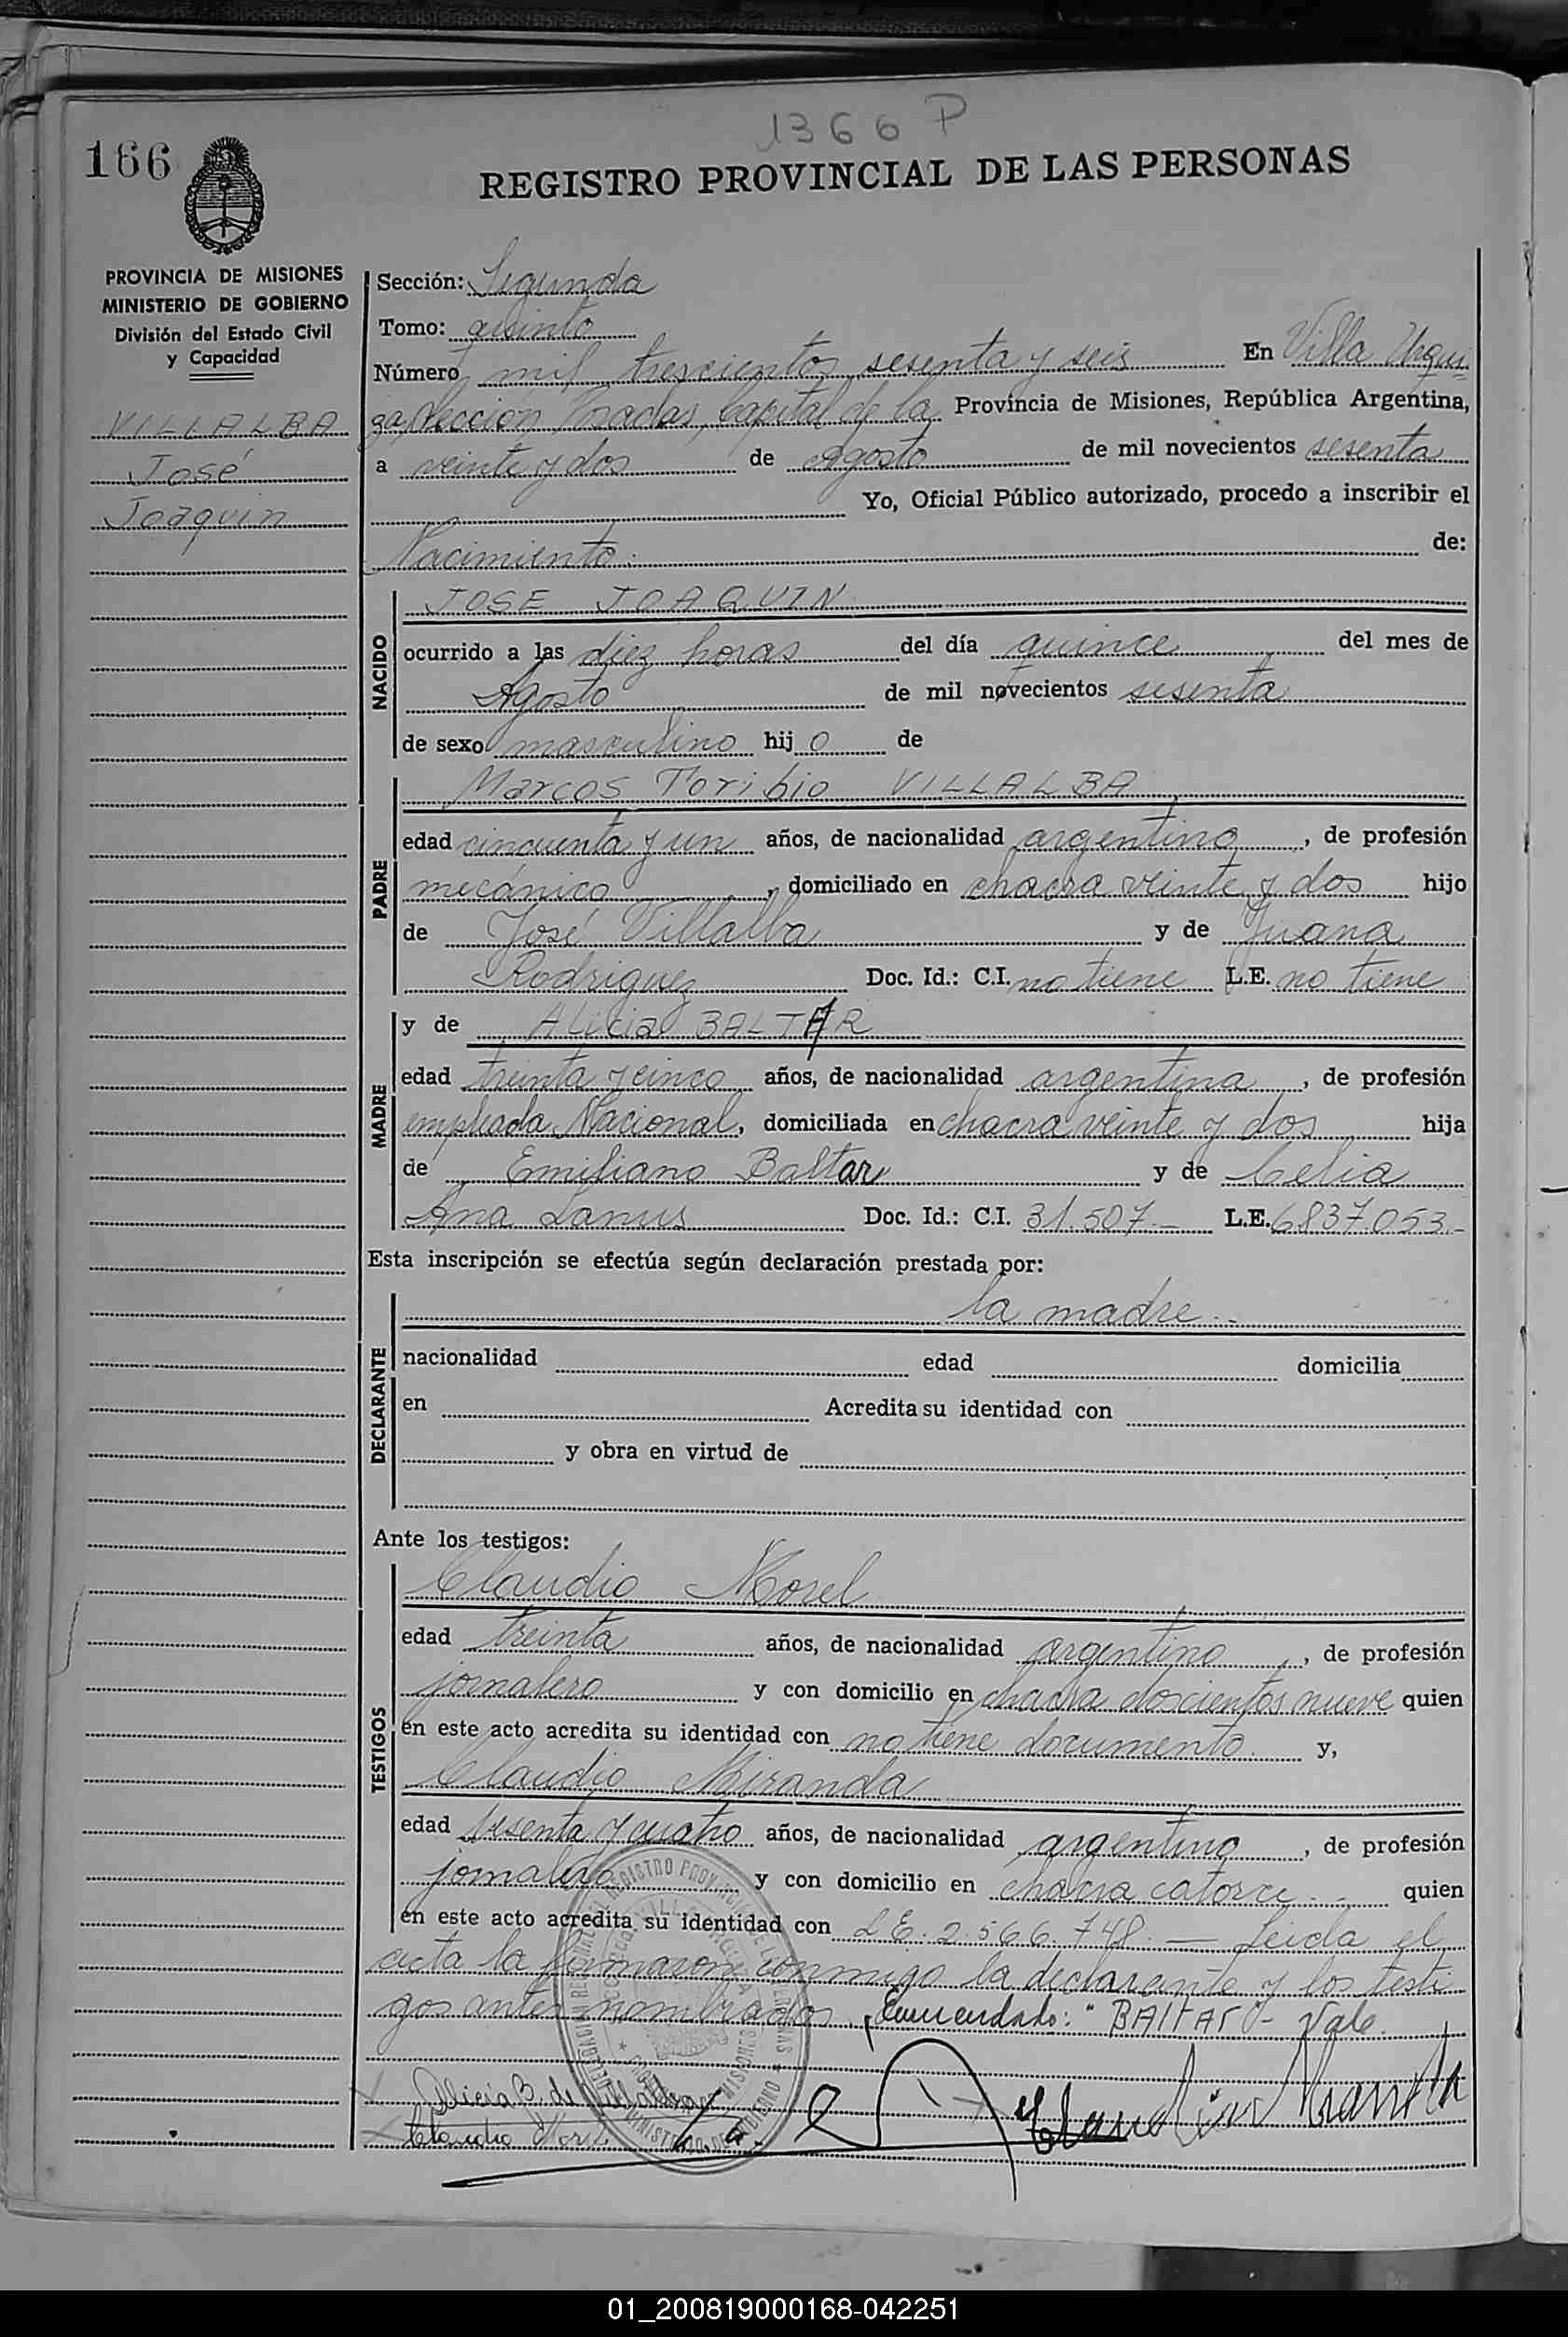 1366 P
166
REGISTRO PROVINCIAL DE LAS PERSONAS
PROVINCIA DE MISIONES
MINISTERIO DE GOBIERNO
División del Estado Civil
y Capacidad
VILLALBA
José
Joaquin
Sección: Segunda
Tomo: quinto
Número mil trescientos sesenta y seis En Villa Urqui-
za, Sección Posadas, Capital de la Provincia de Misiones, República Argentina,
a veinte y dos de Agosto de mil novecientos sesenta
Yo, Oficial Público autorizado, procedo a inscribir el
Nacimiento: de:
NACIDO
JOSE JOAQUIN
ocurrido a las diez horas del día quince del mes de
Agosto de mil novecientos sesenta
de sexo masculino hijo de
PADRE
Marcos Toribio VILLALBA
edad cincuenta y un años, de nacionalidad argentino, de profesión
mecánico, domiciliado en chacra veinte y dos hijo
de José Villalba y de Juana
Rodriguez Doc. Id.: C.I. no tiene L.E. no tiene
MADRE
y de Alicia BALTAR
edad treinta y cinco años, de nacionalidad argentina, de profesión
empleada Nacional, domiciliada en chacra veinte y dos hija
de Emiliano Baltar y de Celia
Ana Lanus Doc. Id.: C.I. 31.507.- L.E. 6837.053.-
Esta inscripción se efectúa según declaración prestada por:
DECLARANTE
la madre.-
nacionalidad edad domicilia
en Acredita su identidad con
y obra en virtud de
Ante los testigos:
TESTIGOS
Claudio Morel
edad treinta años, de nacionalidad argentino, de profesión
jornalero y con domicilio en chacra doscientos nueve quien
en este acto acredita su identidad con no tiene documento. y,
Claudio Miranda
edad sesenta y cuatro años, de nacionalidad argentino, de profesión
jornalero y con domicilio en chacra catorce.- quien
en este acto acredita su identidad con L E. 2.566.748.- Leida el
acta la firmaron conmigo la declarante y los testi
gos antes nombrados. Enmendado: "BALTAR"- Vale.
Alicia B. de Villalba
Claudio Morel
Claudio Miranda
01_200819000168-042251